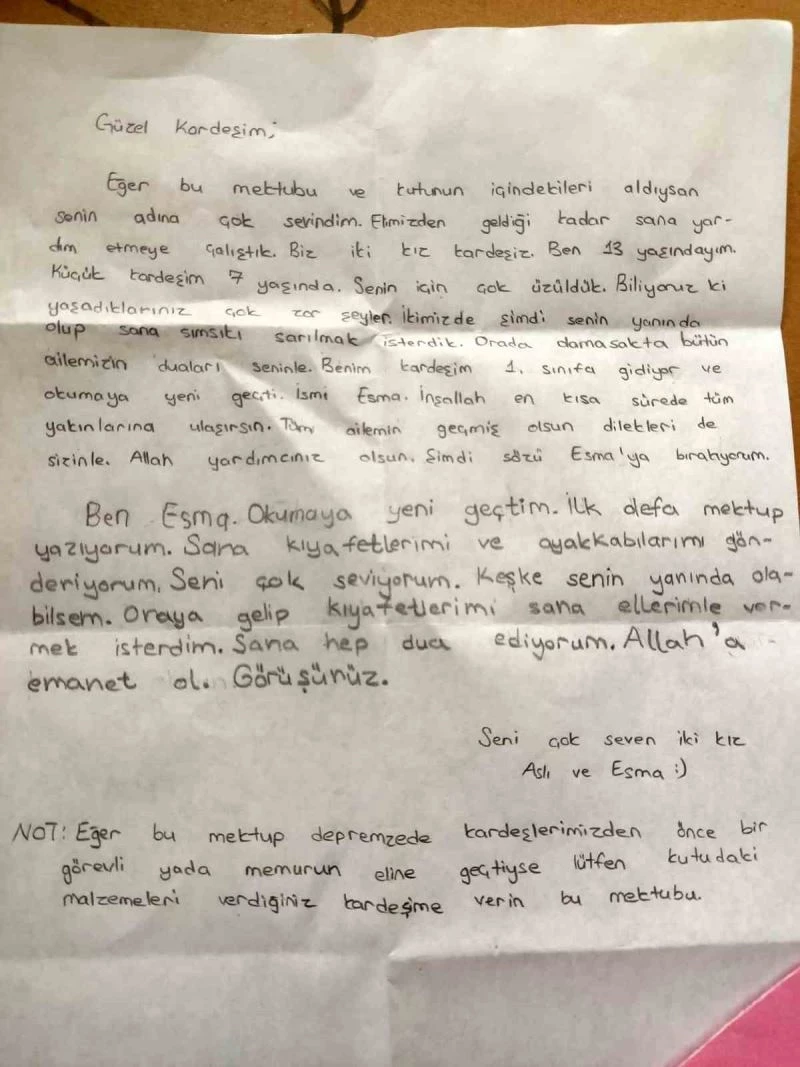 Güzel Kardeşim;
Eğer bu mektubu ve kutunun içindekileri aldıysan
senin adına çok sevindim. Elimizden geldiği kadar sana yar-
dım etmeye çalıştık. Biz iki kız kardeşiz. Ben 13 yaşındayım.
Küçük kardeşim 7 yaşında. Senin için çok üzüldük. Biliyoruz ki
yaşadıklarınız çok zor şeyler. İkimizde şimdi senin yanında
olup sana sımsıkı sarılmak isterdik. Orada damasakta bütün
ailemizin duaları seninle. Benim kardeşim 1. sınıfa gidiyor ve
okumaya yeni geçti. İsmi Esma. İnşallah en kısa sürede tüm
yakınlarına ulaşırsın. Tüm ailemin geçmiş olsun dilekleri de
sizinle. Allah yardımcınız olsun. Şimdi sözü Esma'ya bırakıyorum.
Ben Esma. Okumaya yeni geçtim. İlk defa mektup
yazıyorum. Sana kıyafetlerimi ve ayakkabılarımı gön-
deriyorum. Seni çok seviyorum. Keşke senin yanında ola-
bilsem. Oraya gelip kıyafetlerimi sana ellerimle ver-
mek isterdim. Sana hep dua ediyorum. Allah'a
emanet ol. Görüşünüz.
Seni çok seven iki kız
Aslı ve Esma :)
NOT: Eğer bu mektup depremzede kardeşlerimizden önce bir
görevli yada memurun eline geçtiyse lütfen kutudaki
malzemeleri verdiğiniz kardeşime verin bu mektubu.